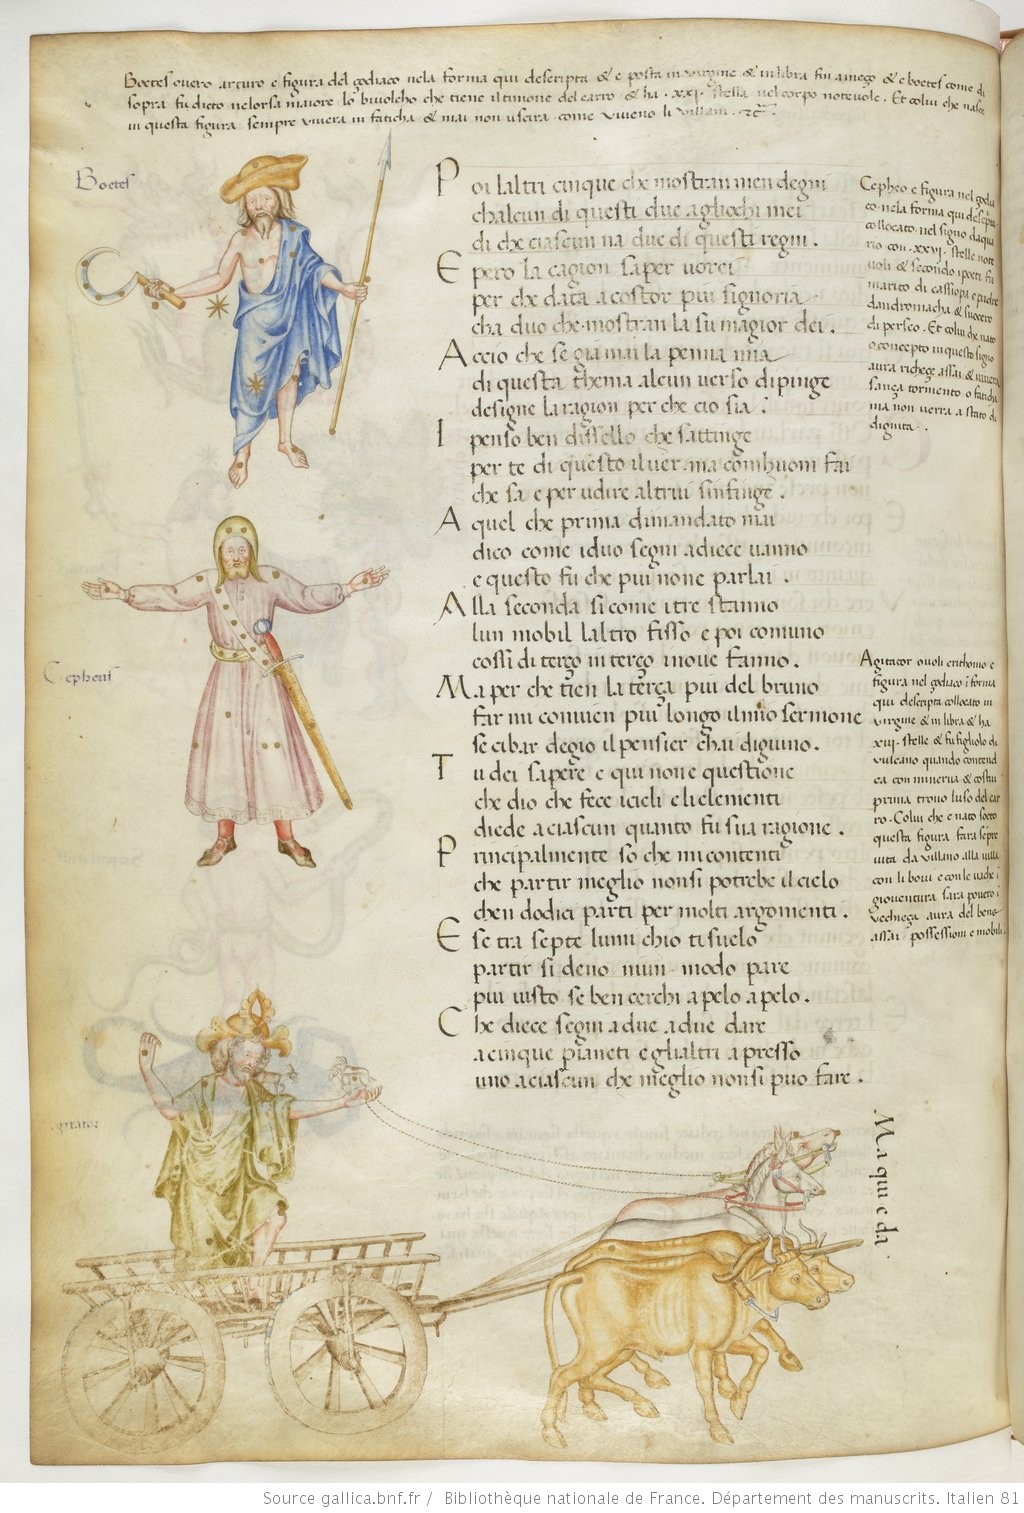 Boetes overo arturo e figura del çodiaco nela forma qui descripta & e posta in virgine & in libra fin a meço & e boetes come di
sopra fu dicto nelorsa maiore lo buiolcho che tiene il timone del carro & ha .xxi. stella nel corpo notevole. Et colui che nasce
in questa figura sempre vivera in faticha & mai non uscira come viveno li villani.
Boetes
Poi laltri cinque che mostran men degni
chalcun di questi due agliochi mei
di che ciascun na due di questi regni.
E pero la cagion saper vorei
per che data a costor piu signoria
cha duo che mostran la su magior dei.
Accio che se gia mai la penna mia
di questa thema alcun verso dipinge
designe la ragion per che cio sia.
I penso ben dissello che sattinge
per te di questo il ver. ma comhuom fai
che sa e per udire altrui sinfinge.
A quel che prima dimandato mai
dico come i duo segni a diece vanno
e questo fu che piu none parlai.
Alla seconda si come i tre stanno
lun mobil laltro fisso e poi comuno
cossi di terço in terço inove fanno.
Ma per che tien la terça piu del bruno
far mi convien piu longo il mio sermone
se cibar degio il pensier chai digiuno.
Tu dei sapere e qui none questione
che dio che fece i cieli e li elementi
diede a ciascun quanto fu sua ragione.
Principalmente so che mi contenti
che partir meglio non si potrebe il cielo
chen dodici parti per molti argomenti.
E se tra septe lumi chio ti suelo
partir si deno niun modo pare
piu visto se ben cerchi a pelo a pelo.
Che diece segni a due a due dare
a cinque pianeti e gli altri apresso
uno a ciascun che meglio non si puo fare.
Ma qui e da
Cepheo e figura nel çodia
co nela forma qui descripta
collocato nel signo daqua
rio con .xxvi. stelle note
voli & secondo i poeti fu
marito di cassiopa e padre
dandromacha & suocero
di perseo. Et colui che nato
o concepto in questo signo
aura richeçe assai & vivera
sança tormento o faticha
ma non verra a stato di
dignita.
Cepheus
Agitator o voli erithonio e
figura nel çodiaco i forma
qui descripta collocato in
virgine & in libra & ha
xiii. stelle & fu figliolo di
vulcano quando contend
ea con minerva & costui
prima trovo luso del car
ro. Colui che e nato socto
questa figura fara sepre
vita da villano alla villa
con li bovi e con le vache i
gioventura sara povero i
vecheça aura del bene
assai possessioni e mobili.
Agitator
Source gallica.bnf.fr / Bibliothèque nationale de France. Département des manuscrits. Italien 81